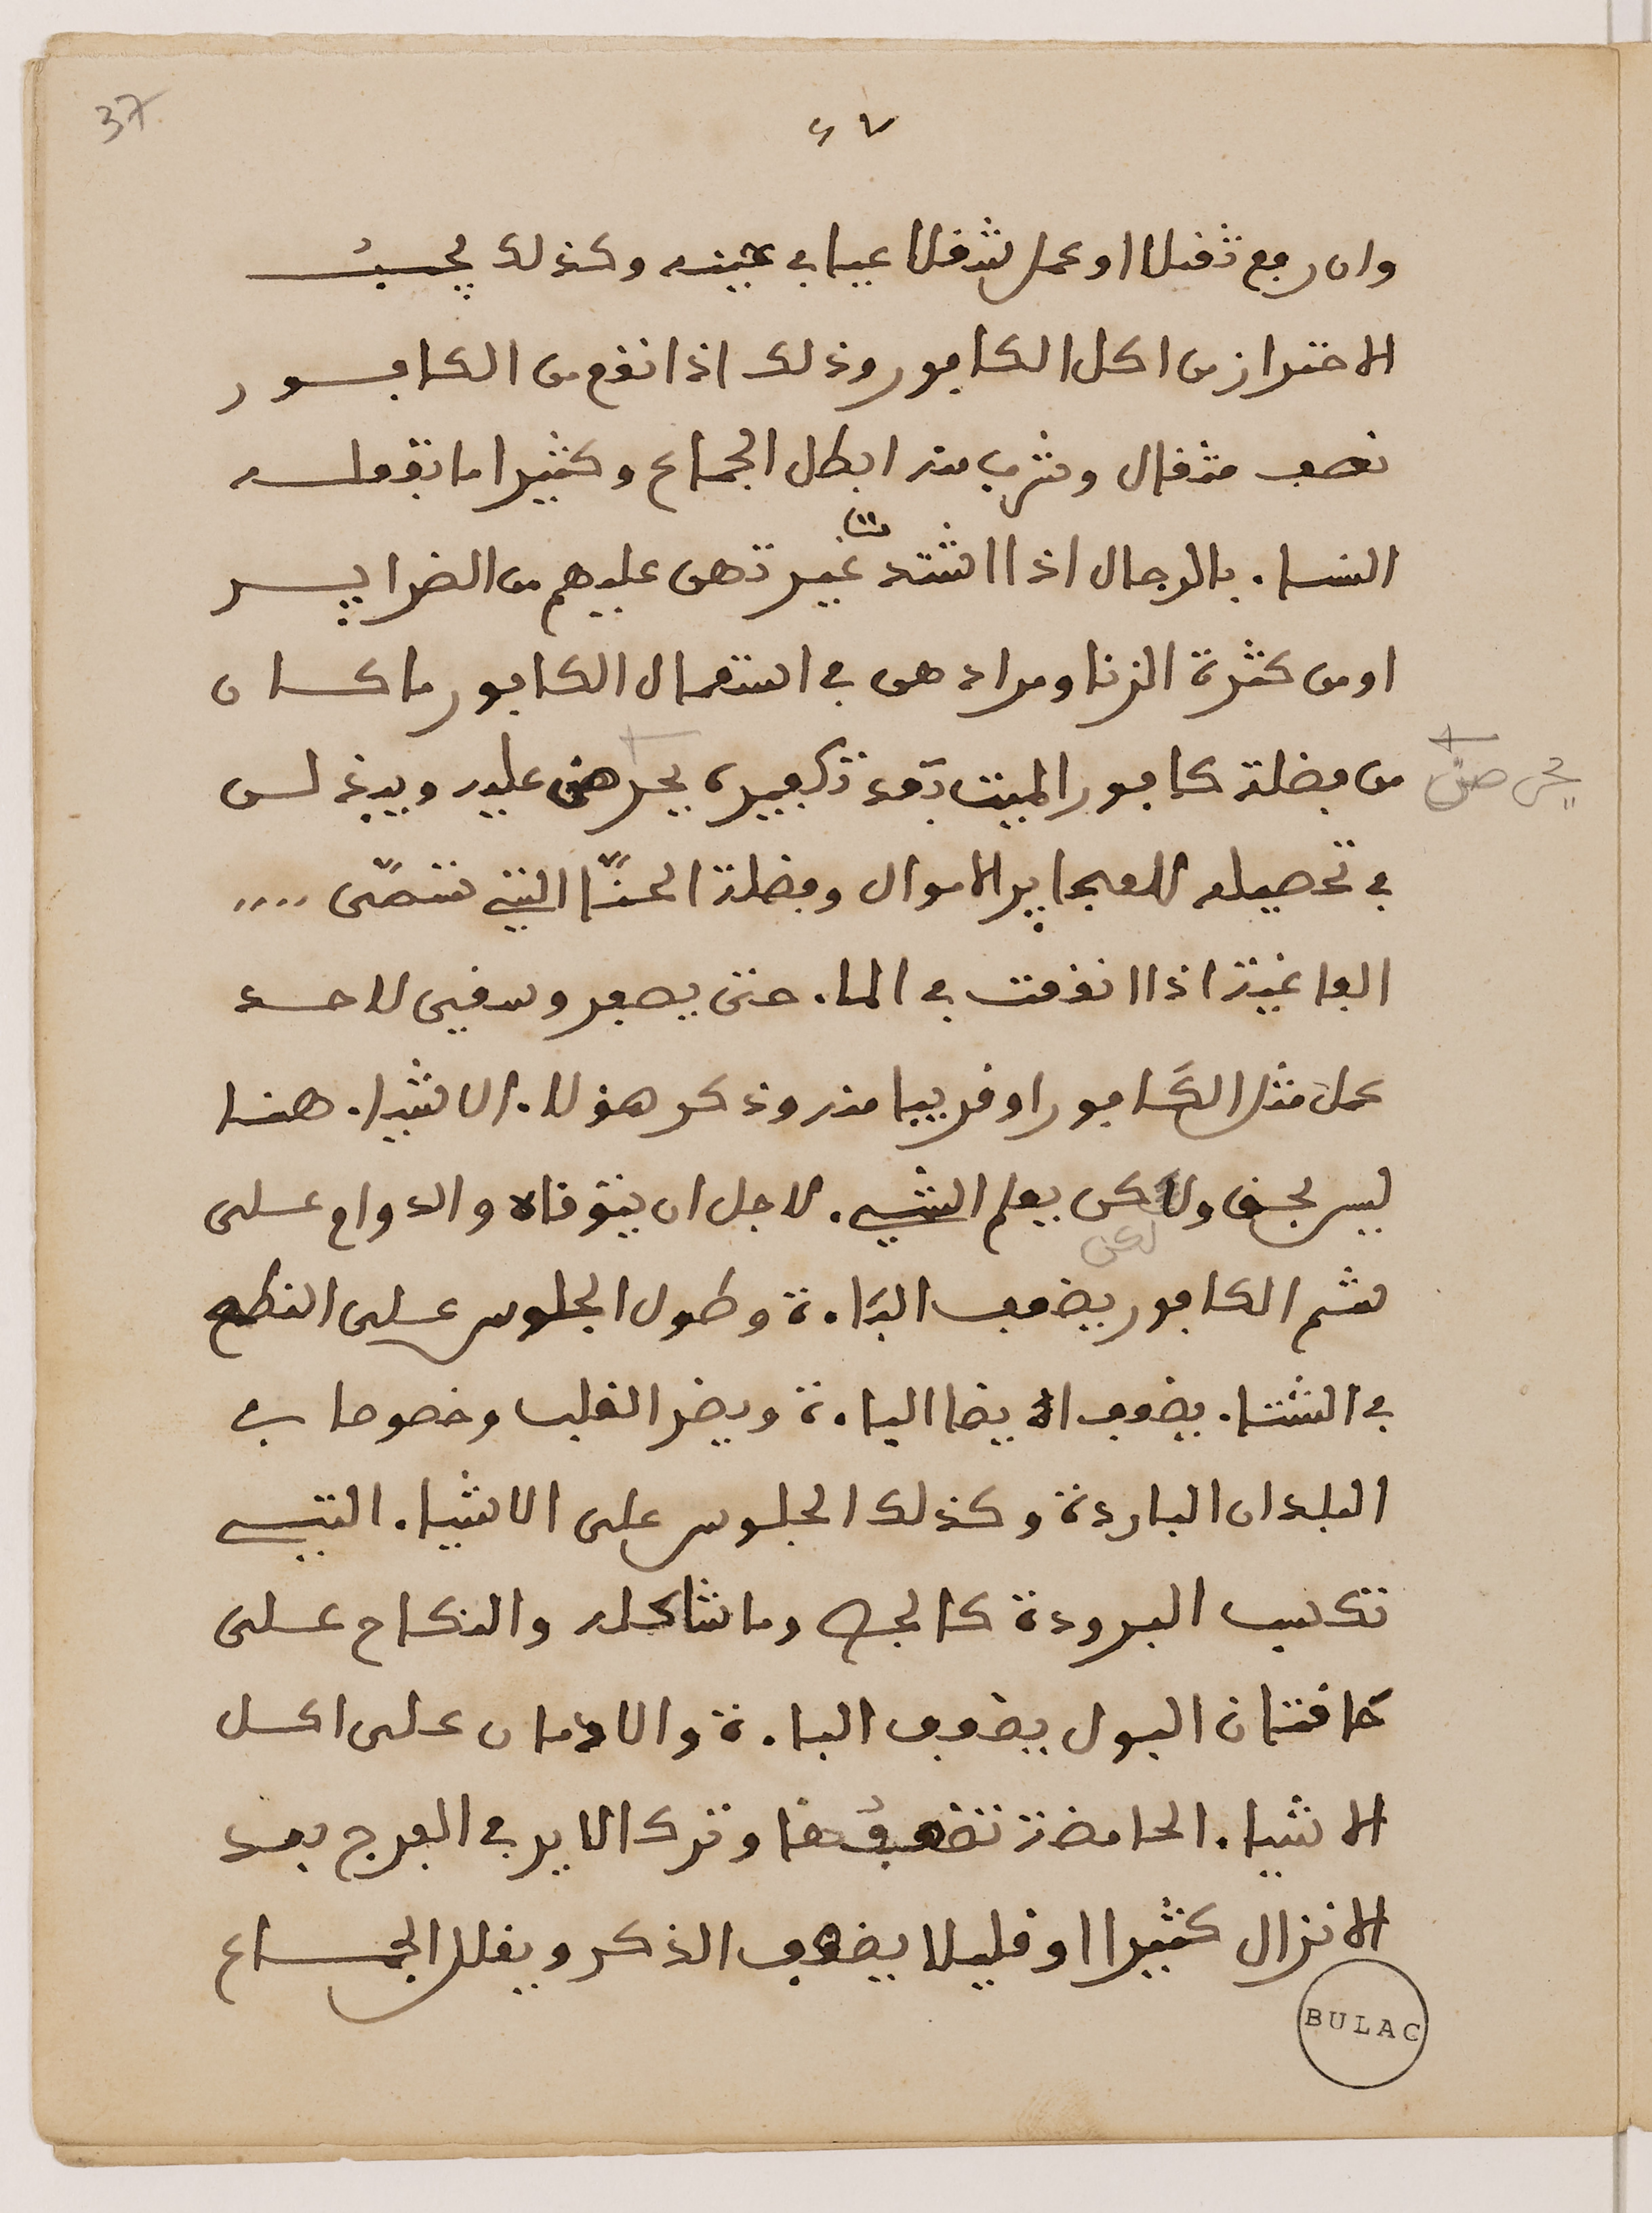 37
٤٧
وان رفع ثقيلا او عمل شغلا عيا في حينه وكذلك يجب
الاحتراز من اكل الكافور وذلك اذا نقع من الكافور
نصف مثقال وشرب منه ابطل الجماع وكثيرا ما تفعله
النساء بالرجال اذا اشتدت غيرتهن عليهم من الضراير
او من كثرة الزنا ومرادهن في استعمال الكافور ما كان
من فضلة كافور الميت بعد تكفينه يحرصن عليه ويبذلن
يحرصن
في تحصيله للعجايز الاموال وفضلة الحنّا التي تسمّى ....
الفاغية اذا انقعت في الماء حتى يصفر وسقي لاحد
عمل مثل الكافور او قريبا منه وذكر هؤلاء الاشياء هنا
ليس بحسن ولاكن يعلم الشيء لاجل ان يتوقاه والدوام على
لكن
شم الكافور يضعف الباءة وطول الجلوس على النطع
في الشتاء يضعف ايضا الباءة ويضر القلب وخصوصا في
البلدان الباردة وكذلك الجلوس على الاشياء التي
تكسب البرودة كالجص وما شاكله والنكاح على
حاقنان البول يضعف الباءة والادمان على اكل
الاشياء الحامضة تضعفها وترك الاير في الفرج بعد
الانزال كثيرا او قليلا يضعف الذكر ويقلل الجماع
BULAC